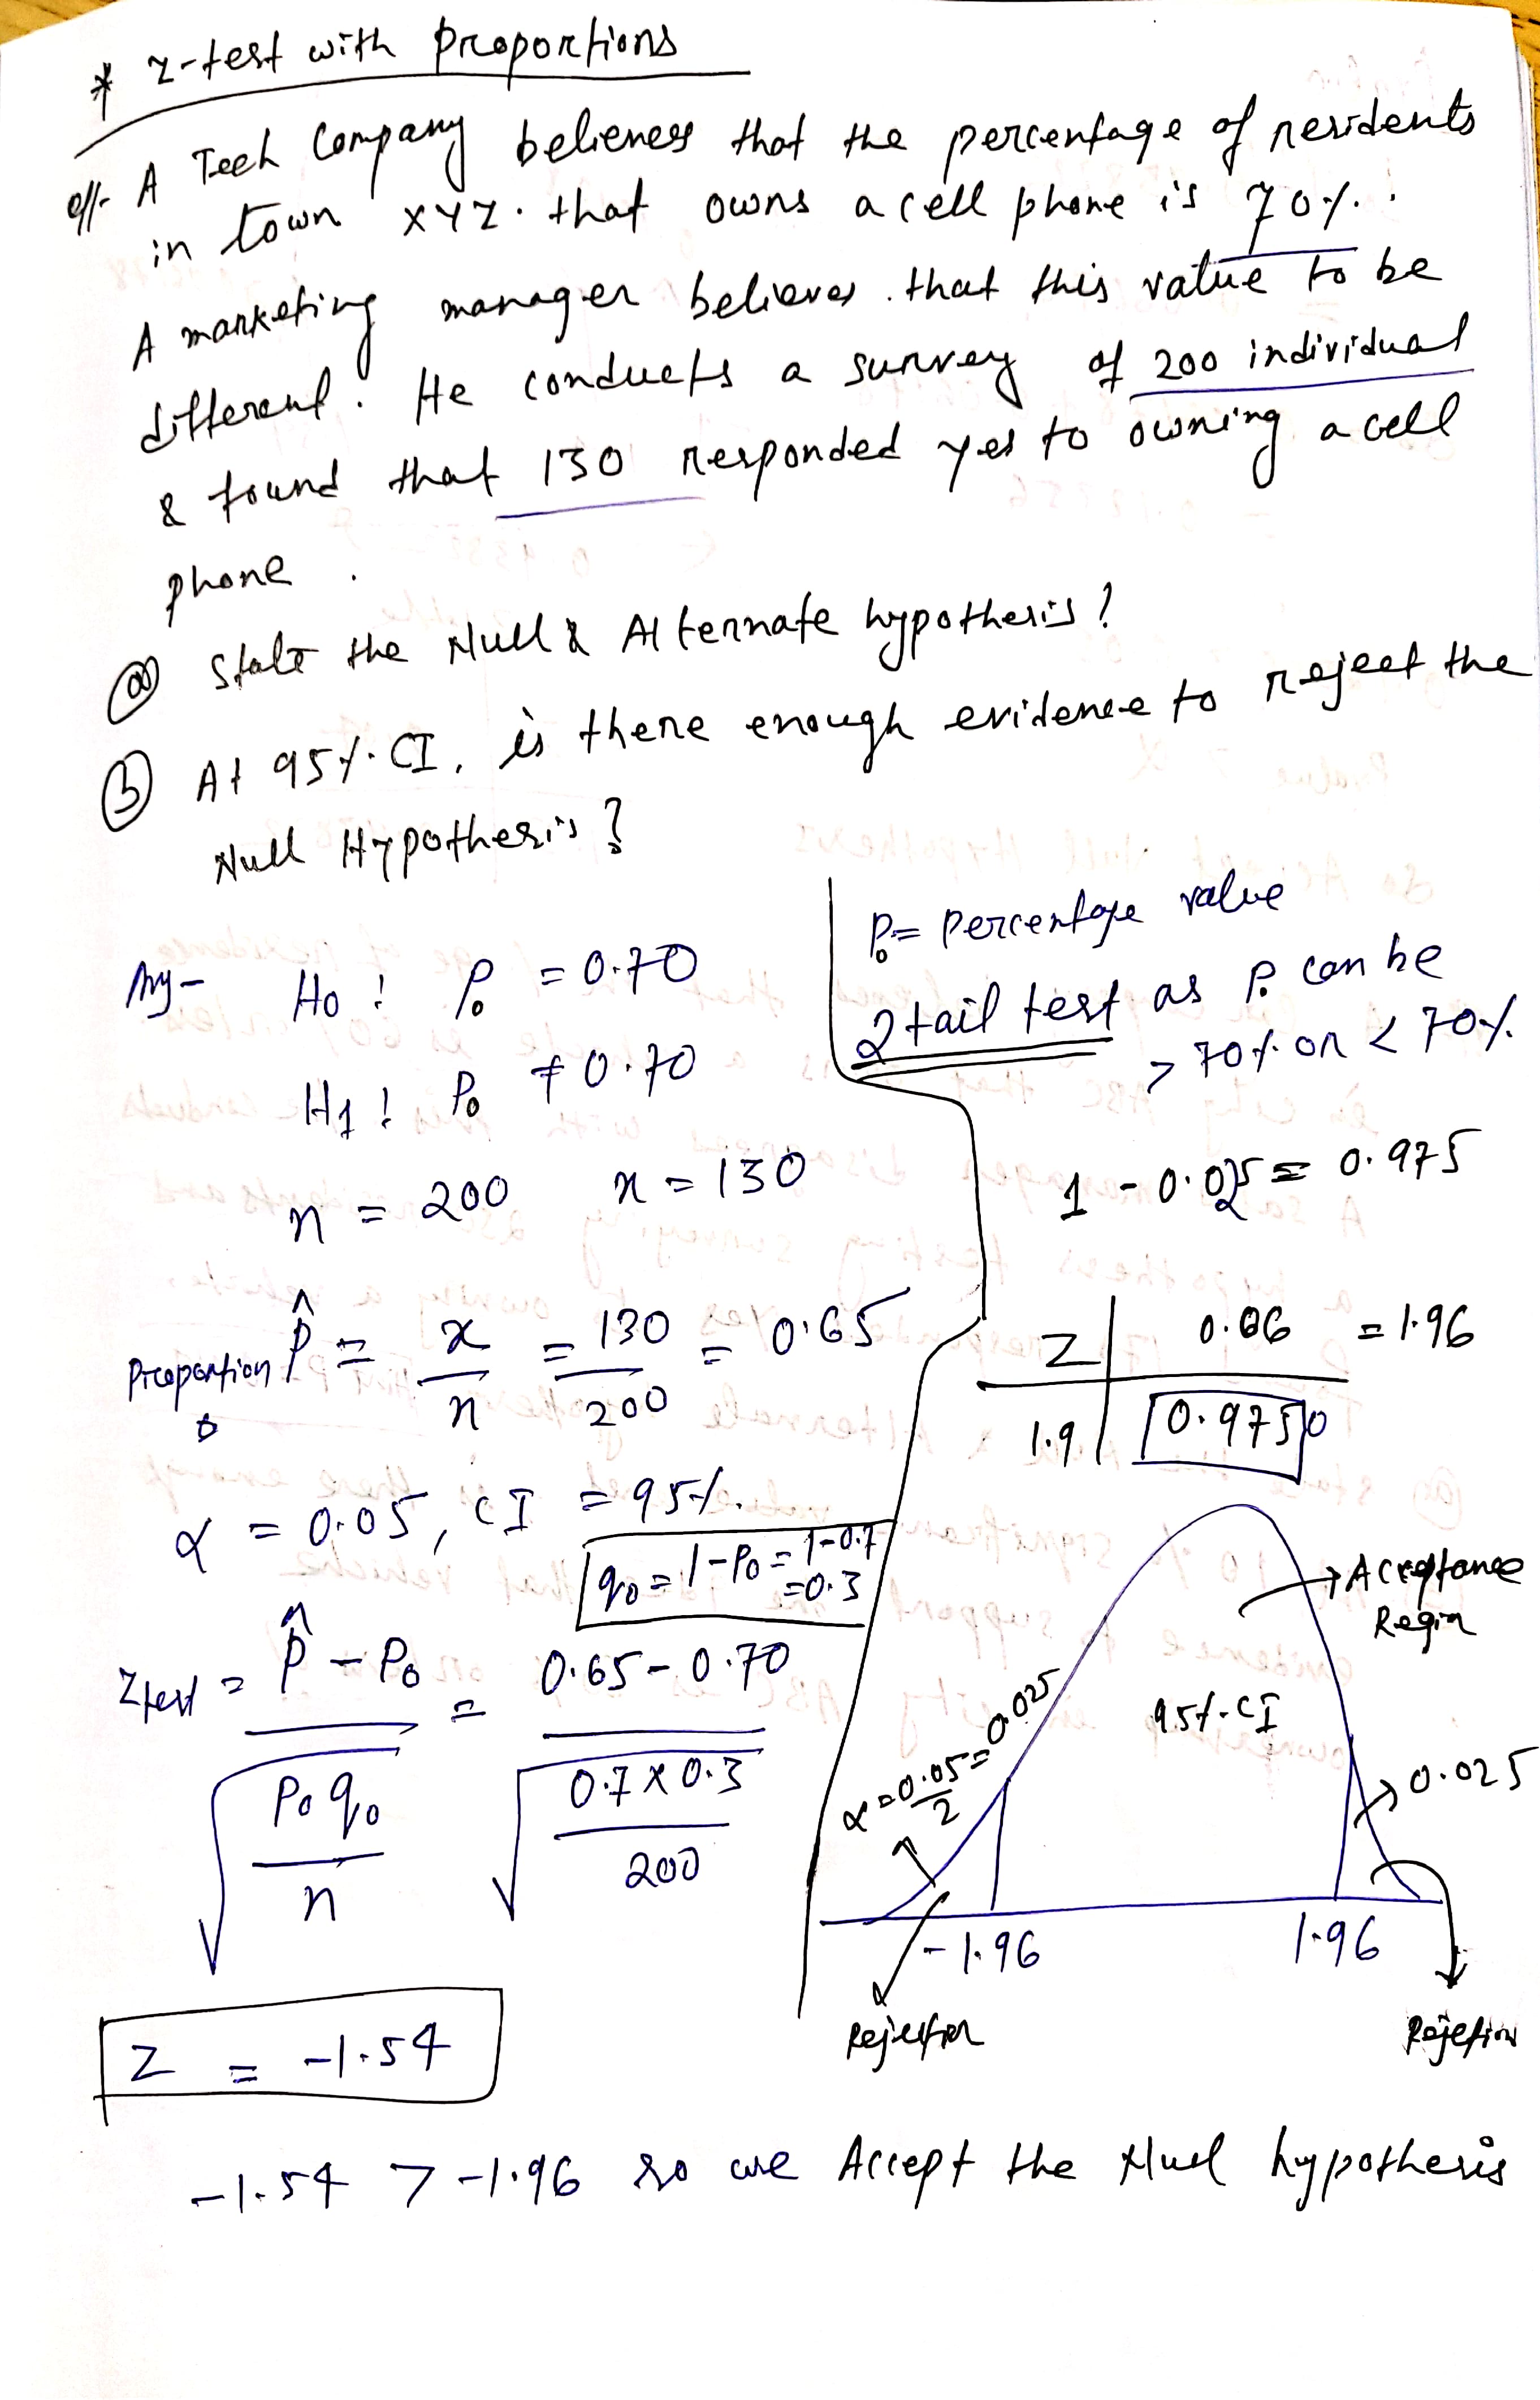 * z-test with proportions
Q/- A Tech Company believes that the percentage of residents
in town XYZ. that owns a cell phone is 70%.
A marketing manager believes that this value to be
different. He conducts a survey of 200 individual
& found that 130 responded yes to owning a cell
phone.
(a) State the Null & Alternate hypothesis?
(b) At 95% CI, is there enough evidence to reject the
Null Hypothesis?
Ans- H0 : P0 = 0.70
H1 : P0 ≠ 0.70
n = 200 x = 130
Proportion p̂ = x/n = 130/200 = 0.65
α = 0.05, CI = 95%.
q0 = 1-P0 = 1-0.7
= 0.3
Ztest = (p̂ - P0)/√(P0 q0/n) = (0.65 - 0.70)/√(0.7 x 0.3/200)
Z = -1.54
P0 = Percentage value
2 tail test as P0 can be
> 70% or < 70%
1 - 0.025 = 0.975
Z | 0.06 = 1.96
1.9 | 0.9750
→ Acceptance
Region
95% CI
α = 0.05/2 = 0.025
0.025
-1.96 1.96
Rejection Rejetion
-1.54 > -1.96 so we Accept the Null hypothesis